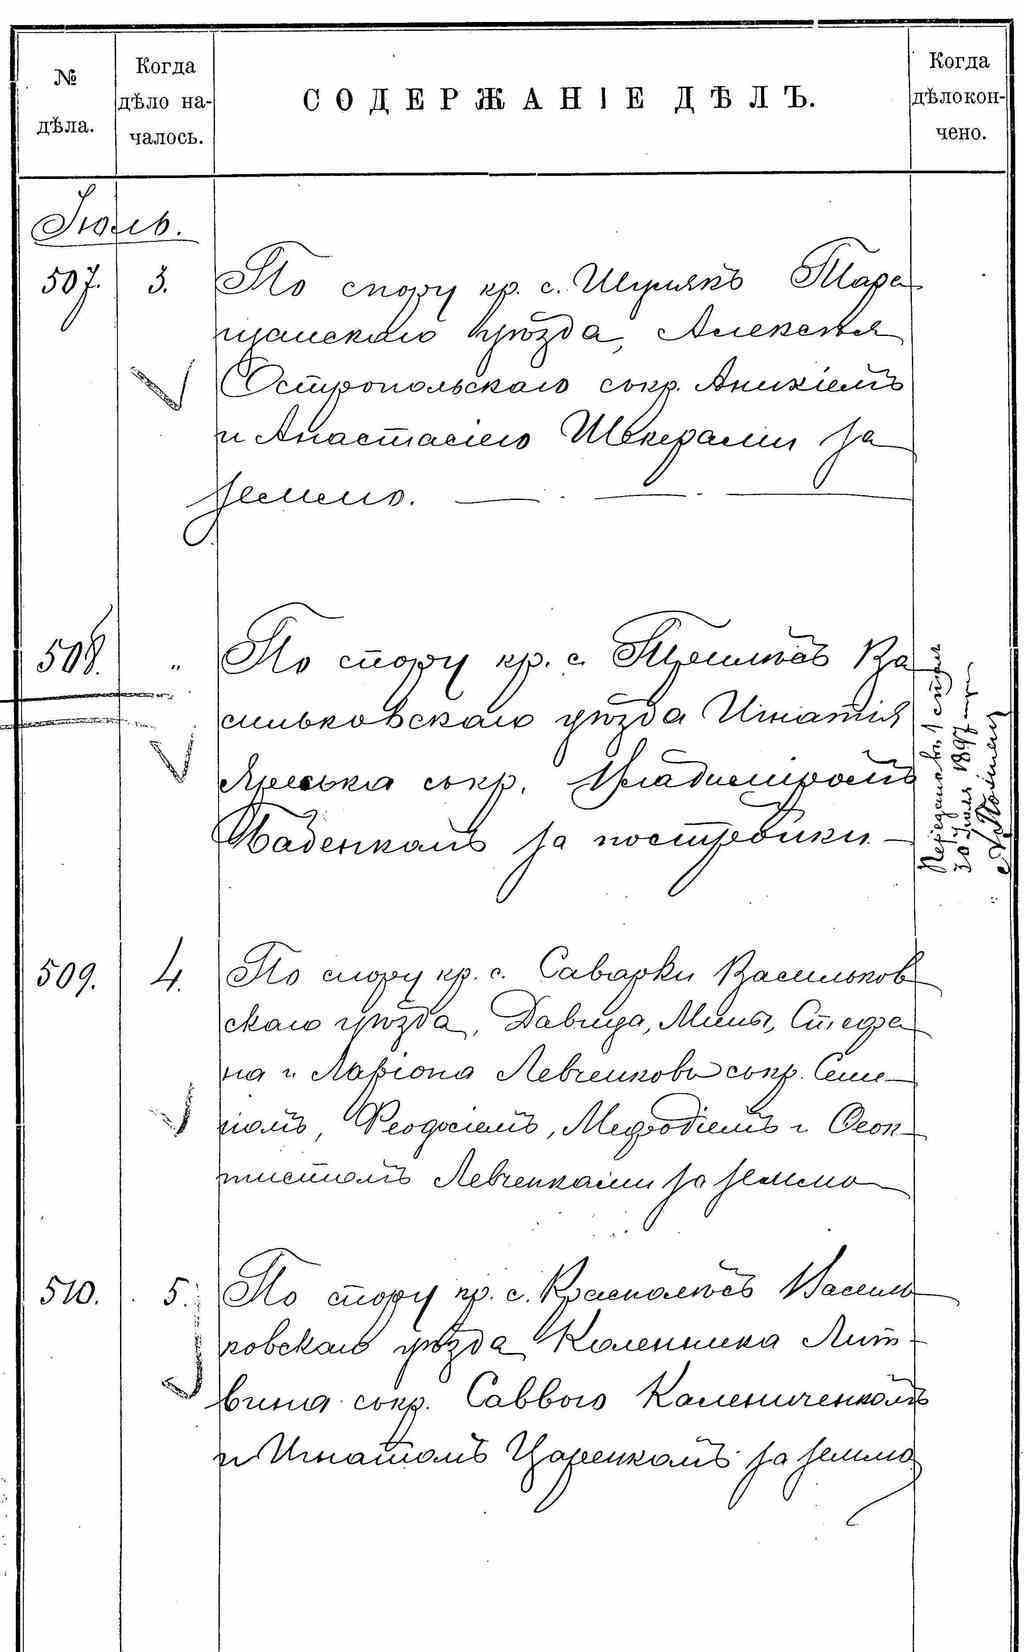 № дѣла.
Когда дѣло на-
чалось.
СОДЕРЖАНІЕ ДѢЛЪ.
Когда
дѣлокон-
чено.
Іюль.
507. 3. По спору кр. с. Шулякъ Тара
щанскаго уѣзда, Алексѣя
Остропольскаго сокр. Аникіемъ
и Анастасіею Шкерами за
землю.
508. „ По спору кр. с. Трилѣсъ Ва
сильковскаго уѣзда Игнатія
Яреська сокр. Владиміромъ
Бабенкомъ за постройки.
Передано въ 1 столъ
30 Іюля 1897 г.
509. 4. По спору кр. с. Саварки Васильков
скаго уѣзда, Давида, Мины, Стефа
на и Ларіона Левченковъ сокр. Семе
номъ, Феодосіемъ, Мефодіемъ и Феок-
тистомъ Левченками за землю
510. 5. По спору кр. с. Краснолѣсъ Василь
ковскаго уѣзда Каленика Лит-
вина сокр. Саввою Калениченкомъ
и Игнатомъ Царенкомъ за землю